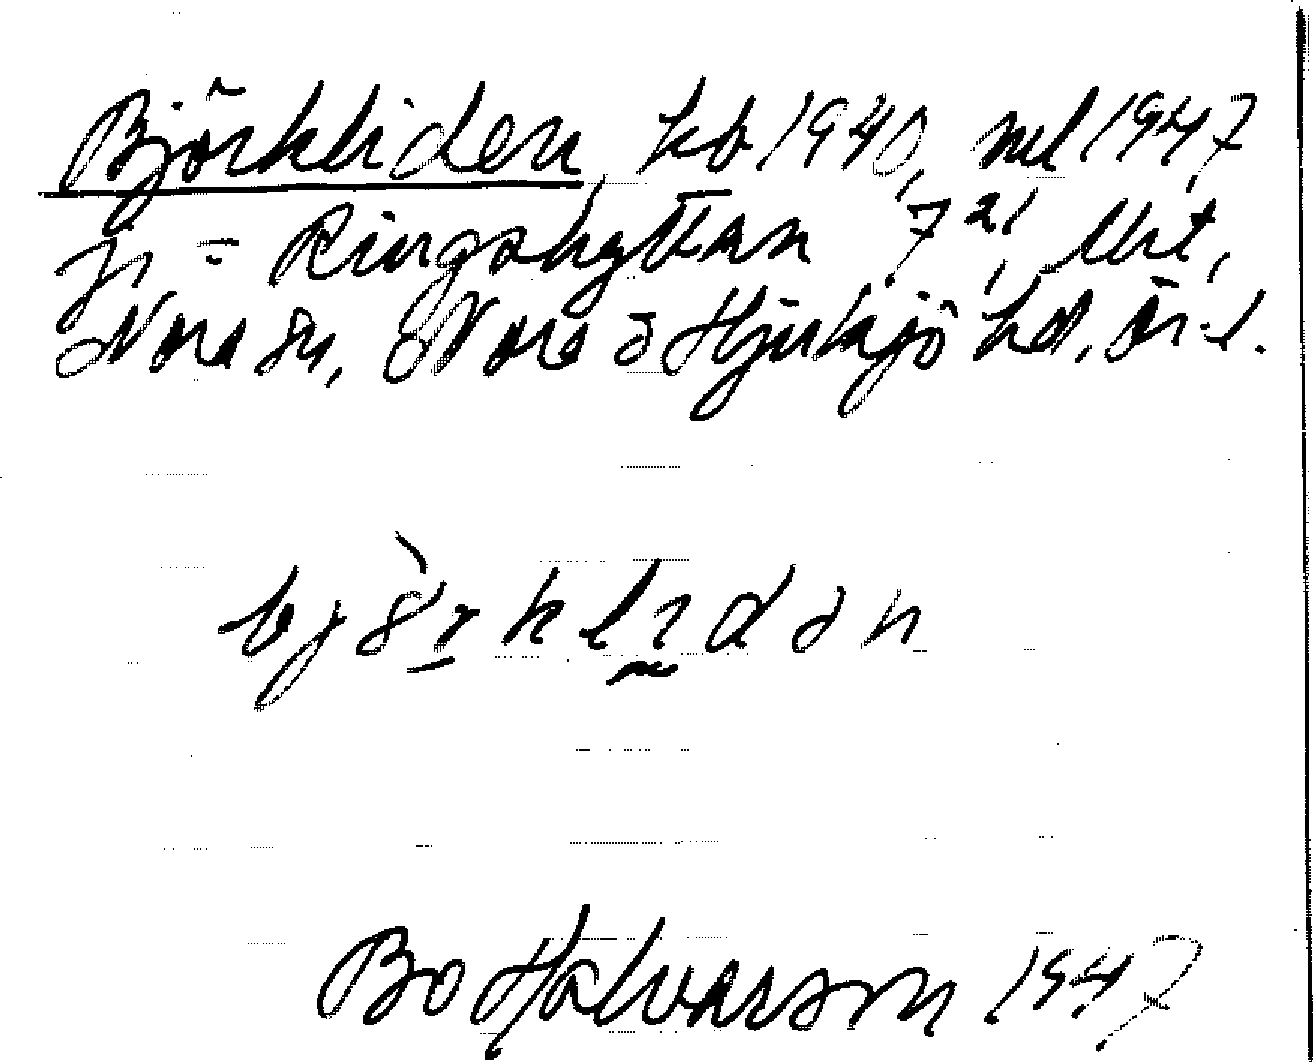 Björkliden kb 1940, ml 1947
= Ringshyttan 7²¹,
Nora sn, Nora o Hjulsjö hd, Ör. l.
Bo Halvarson 1947